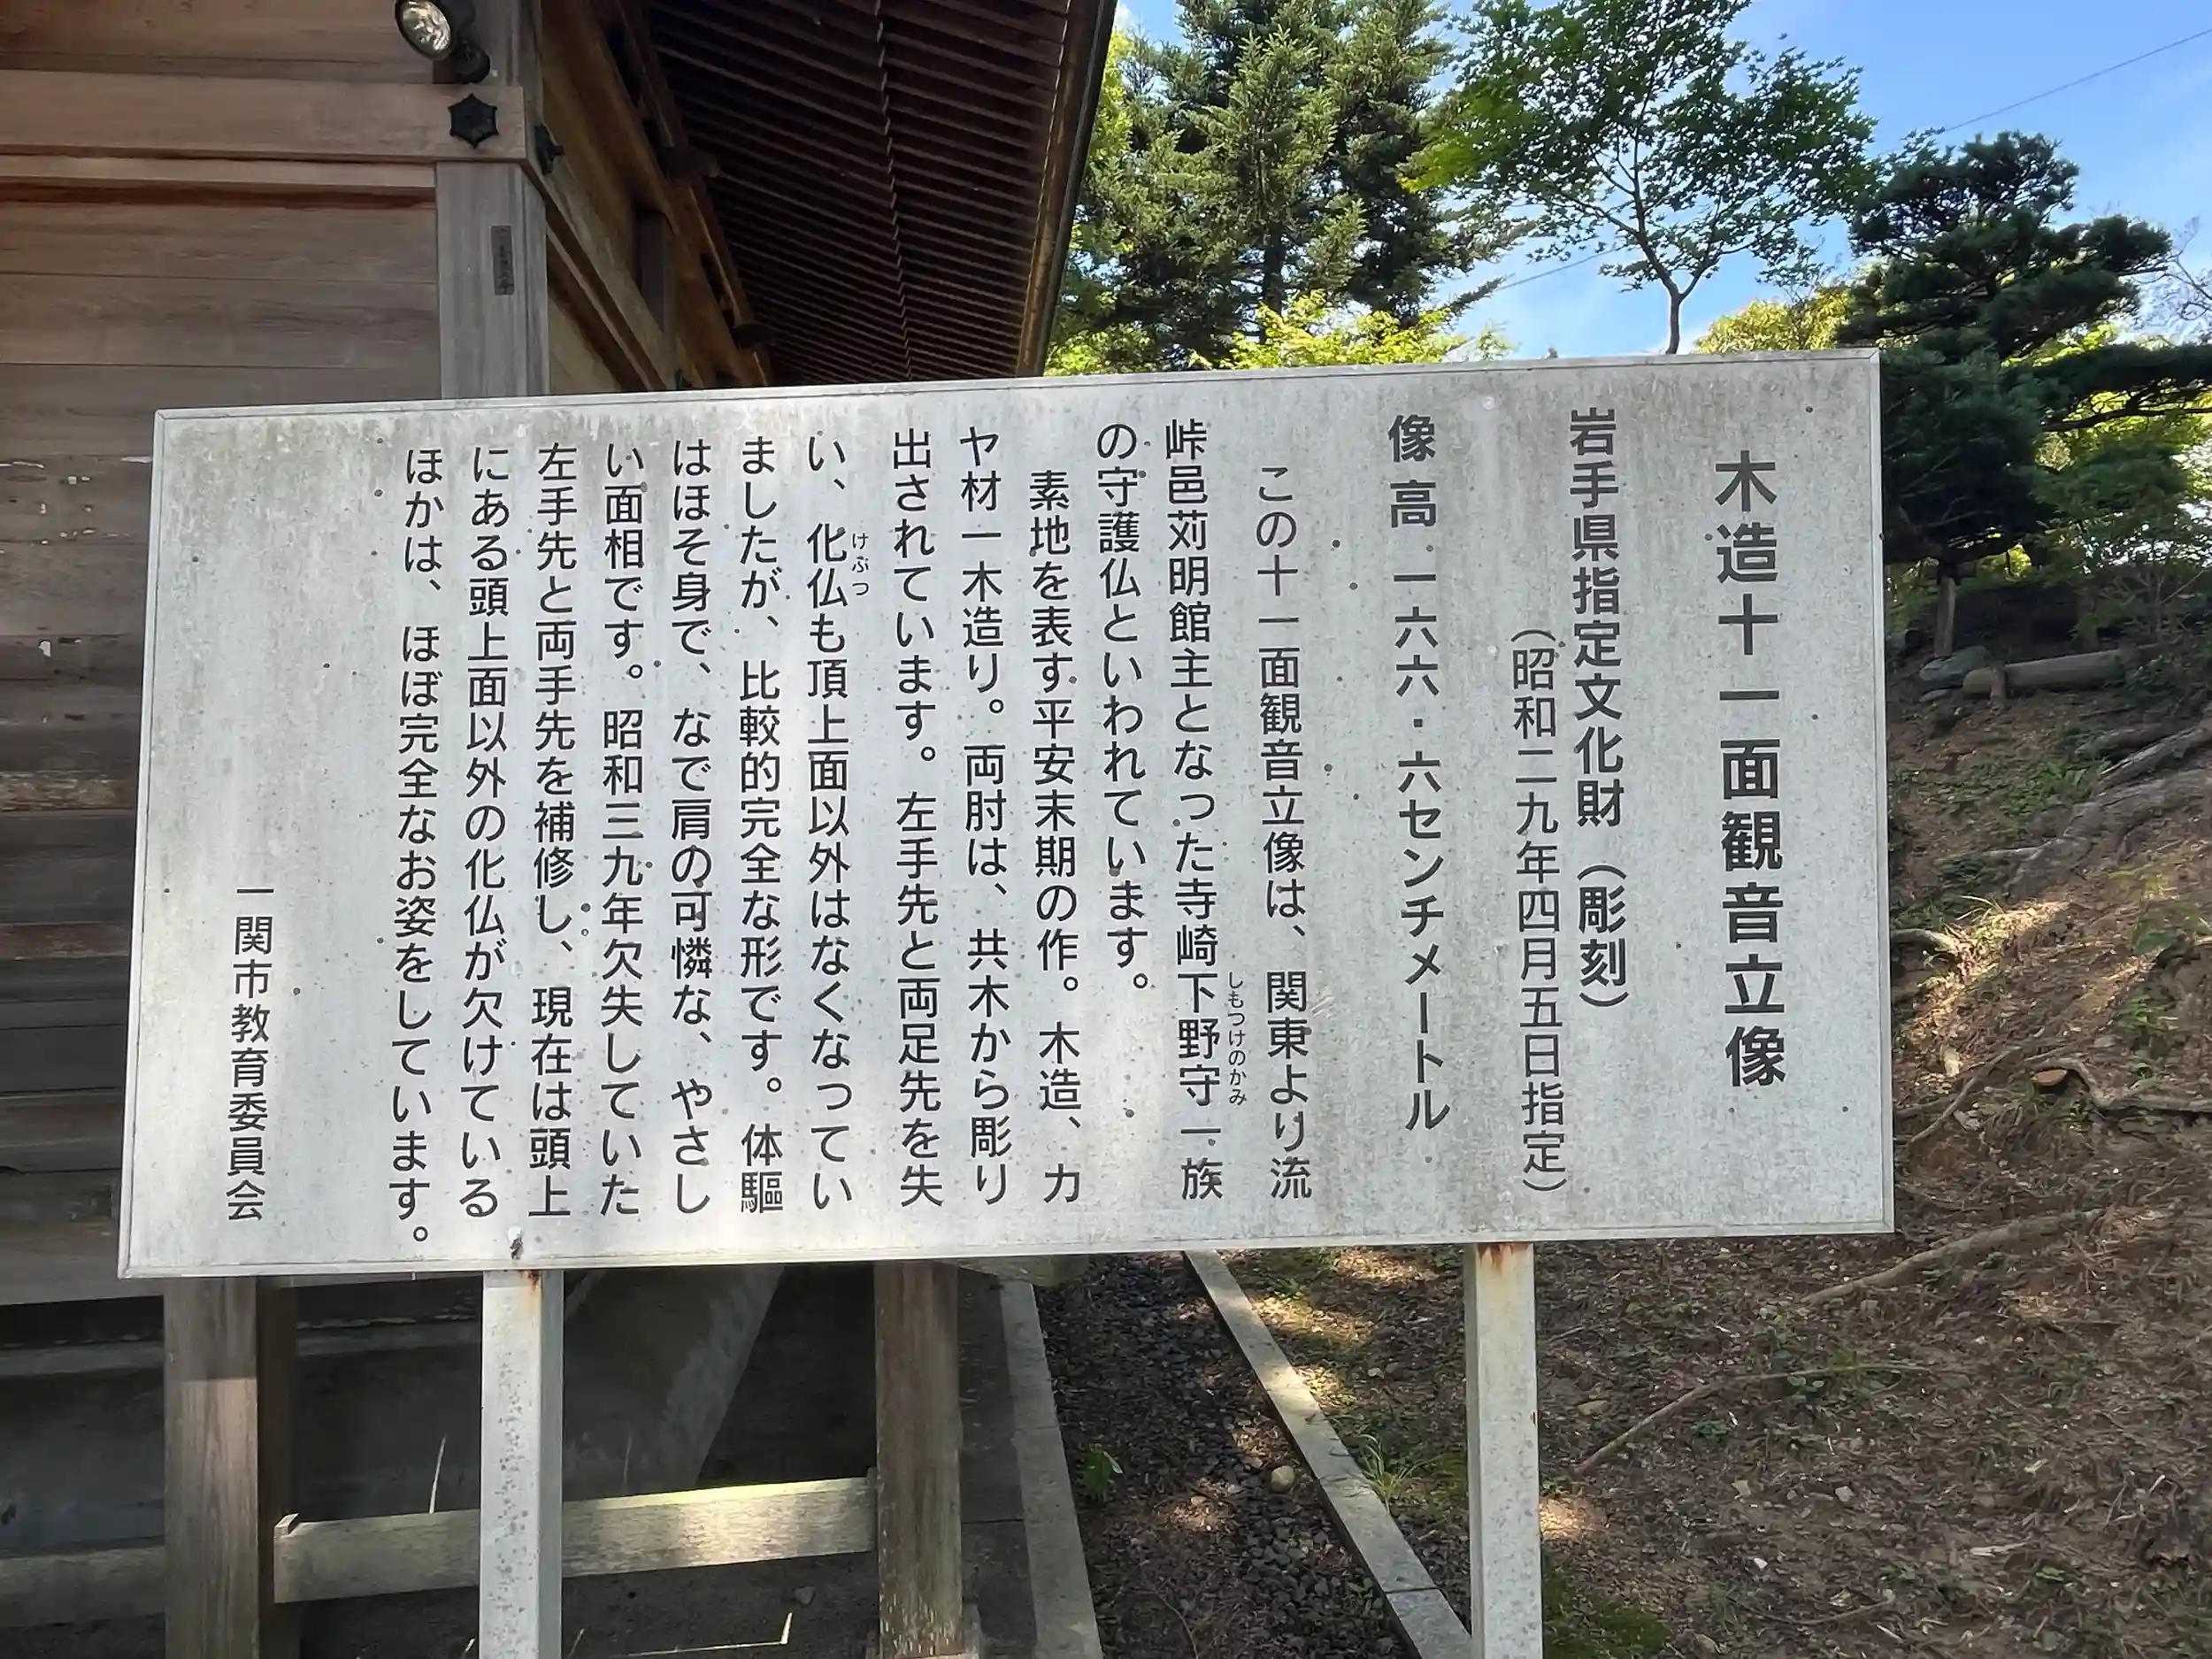 木造十一面観音立像
岩手県指定文化財（彫刻）
（昭和二九年四月五日指定）
像高 一六六・六センチメートル
この十一面観音立像は、関東より流
峠邑苅明館主となった寺崎下野守一族
しもつけのかみ
の守護仏といわれています。
素地を表す平安末期の作。木造、カ
ヤ材一木造り。両肘は、共木から彫り
出されています。左手先と両足先を失
い、化仏も頂上面以外はなくなってい
けぶつ
ましたが、比較的完全な形です。体驅
はほそ身で、なで肩の可憐な、やさし
い面相です。昭和三九年欠失していた
左手先と両手先を補修し、現在は頭上
にある頭上面以外の化仏が欠けている
ほかは、ほぼ完全なお姿をしています。
一関市教育委員会